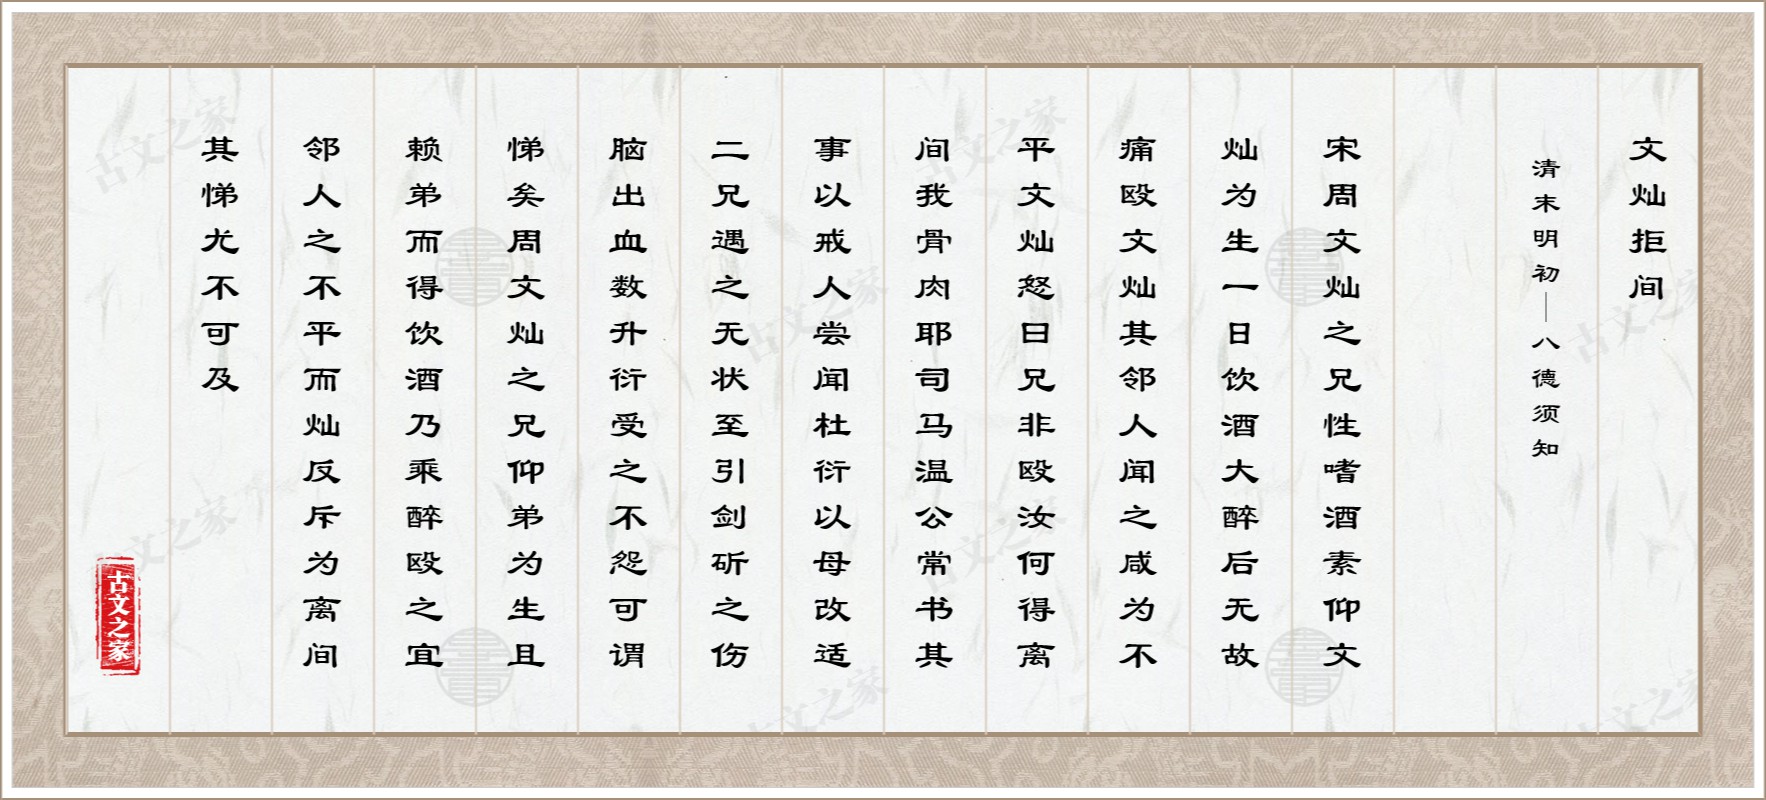 文灿拒间
清末明初—八德须知
宋周文灿之兄性嗜酒素仰文
灿为生一日饮酒大醉后无故
痛殴文灿其邻人闻之咸为不
平文灿怒曰兄非殴汝何得离
间我骨肉耶司马温公常书其
事以戒人尝闻杜衍以母改适
二兄遇之无状至引剑斫之伤
脑出血数升衍受之不怨可谓
悌矣周文灿之兄仰弟为生且
赖弟而得饮酒乃乘醉殴之宜
邻人之不平而灿反斥为离间
其悌尤不可及
古文之家